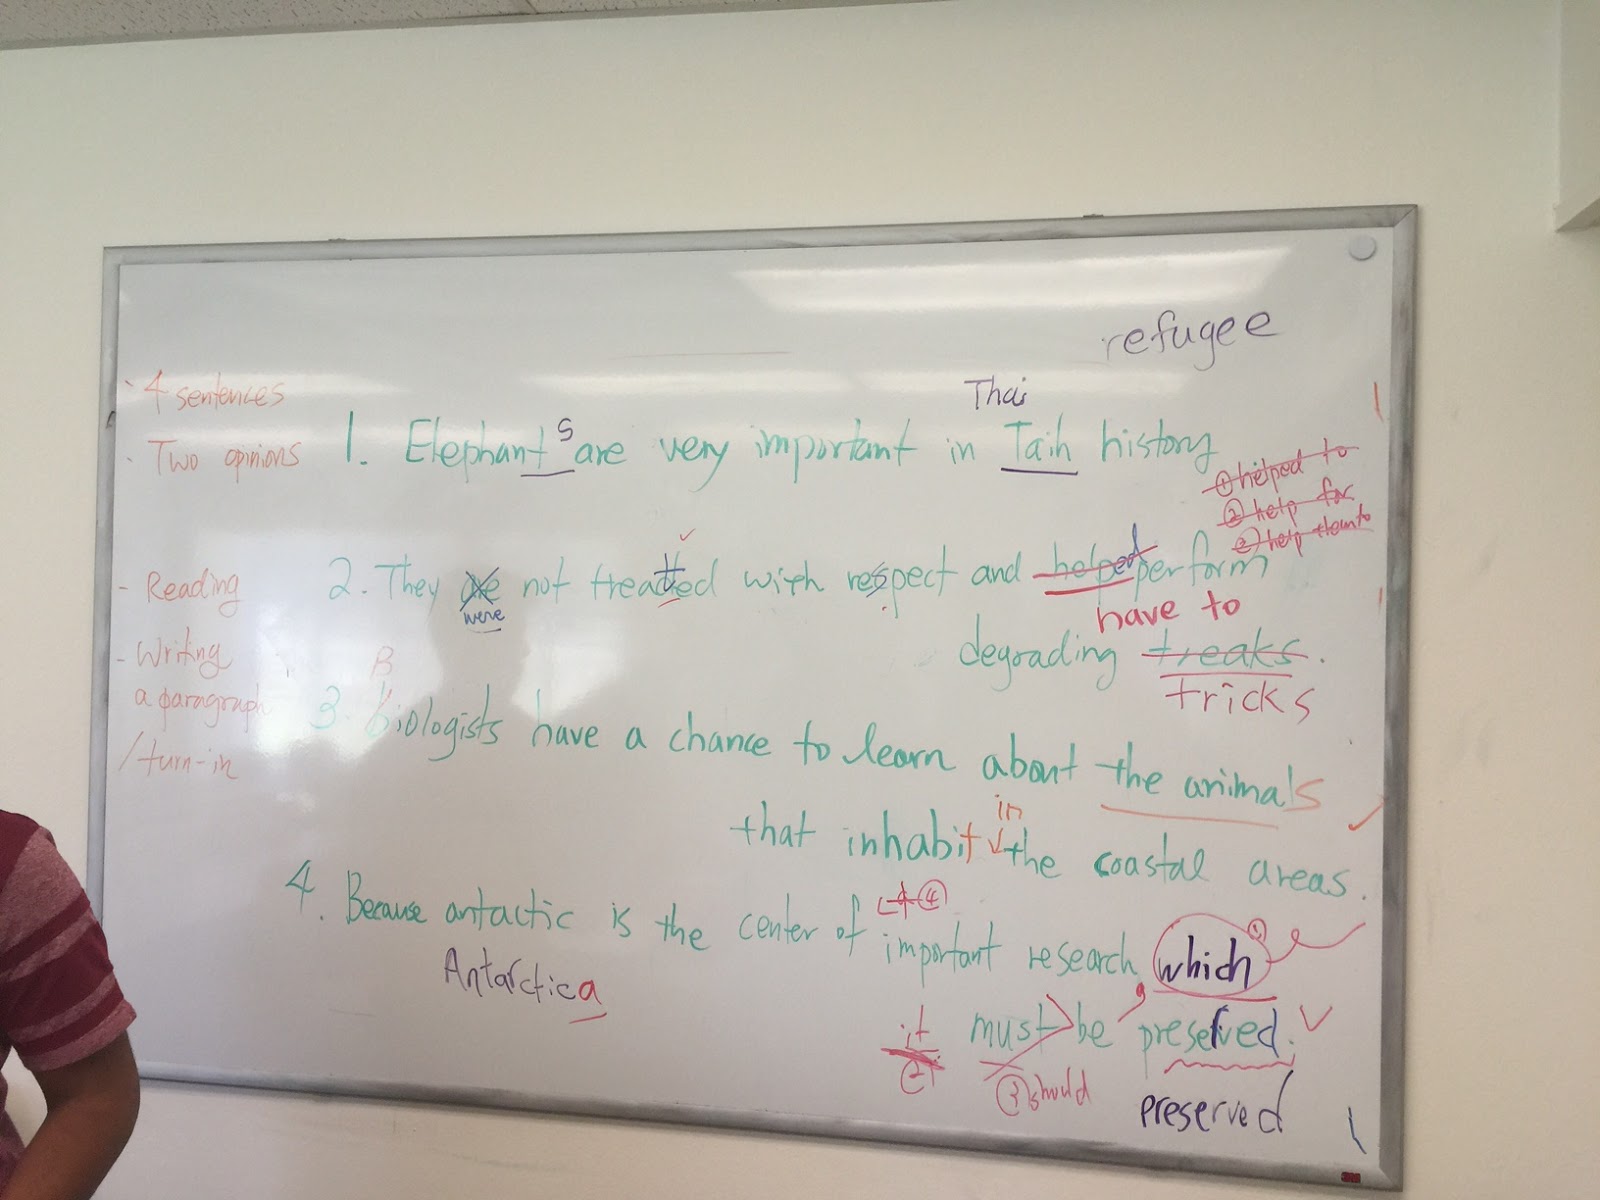 refugee
4 sentences
Two opinions
Thai
1. Elephants are very important in Taih history
① helped to
② help for
③ help them to
2. They are not treatted with respect and helped perform
were
have to
degrading treaks.
tricks
- Reading
- Writing
a paragraph
/turn-in
B
3. biologists have a chance to learn about the animals
in
that inhabit the coastal areas.
④
4. Because antactic is the center of important research, which ①
Antarctica
it must be preserved.
② ③ should
preserved